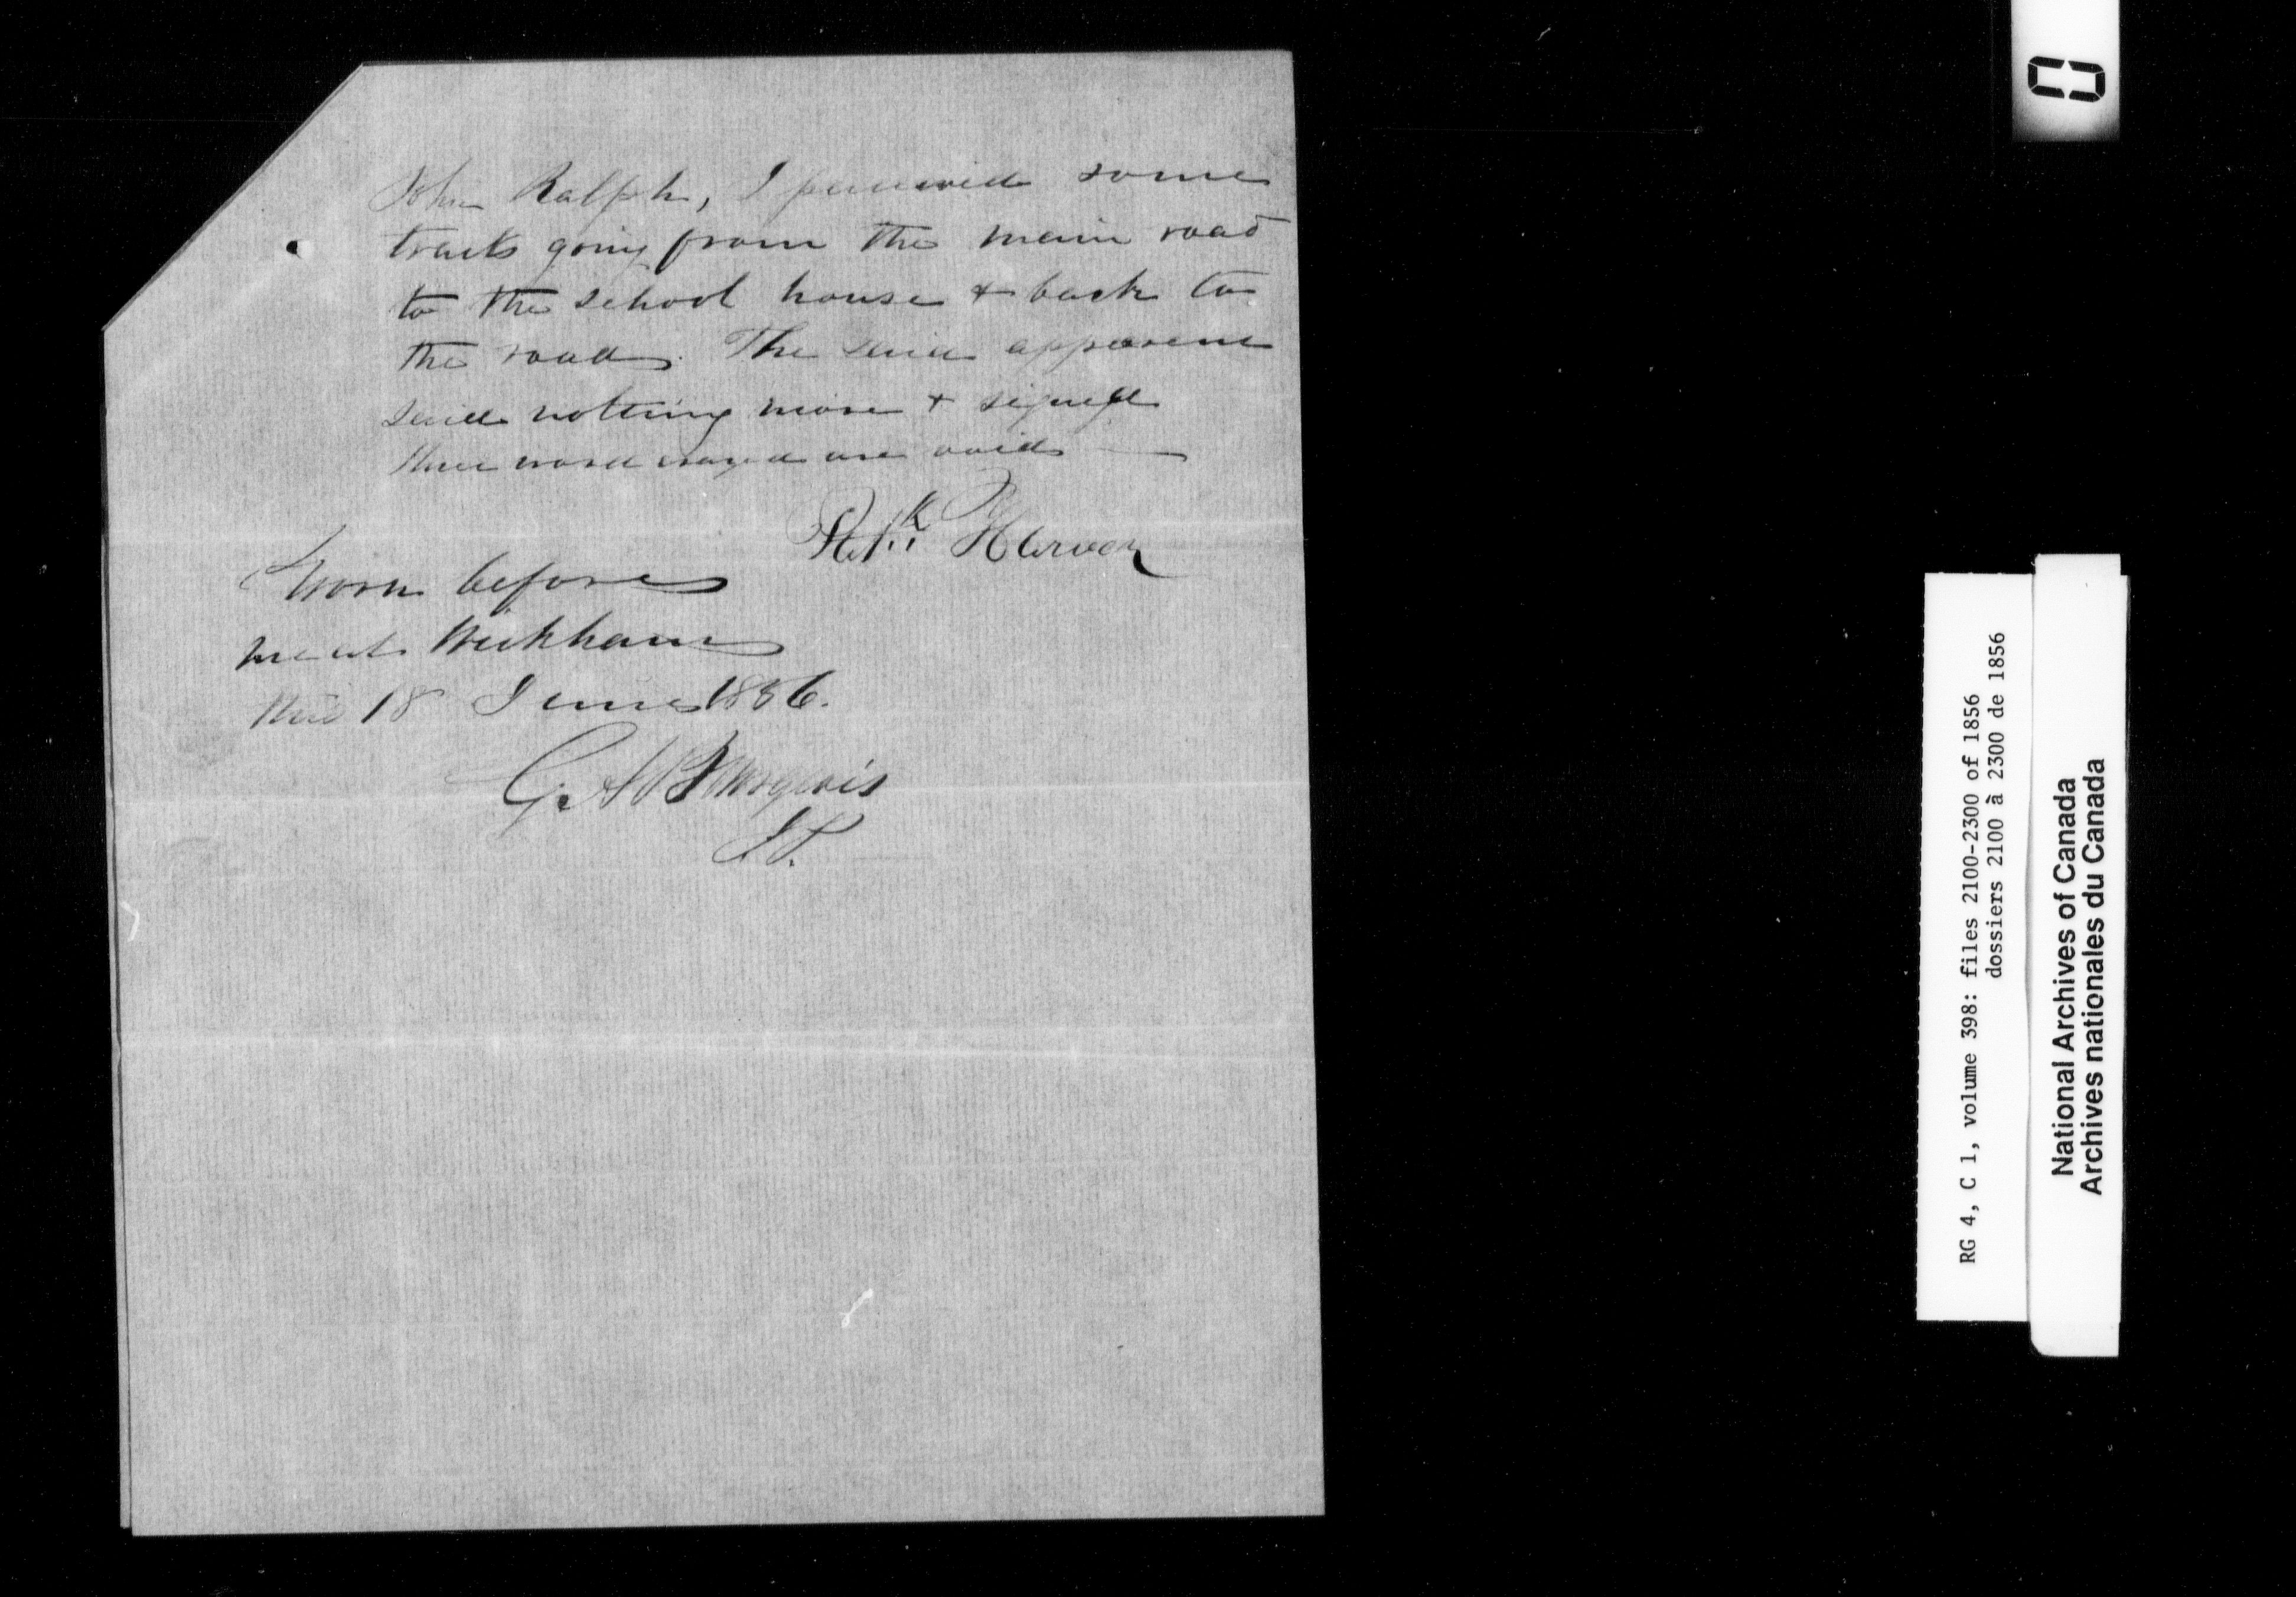 John Ralph, I perceived some
tracks going from the main road
to the school house & back to
the road. The said apparent
said nothing more & signed
three word erased are void
Pat:k Harvey
Sworn before
me at Wickham
this 18 June 1856.
G. A. Bourgeois
J.P.
RG 4, C 1, volume 398: files 2100-2300 of 1856
dossiers 2100 à 2300 de 1856
National Archives of Canada
Archives nationales du Canada